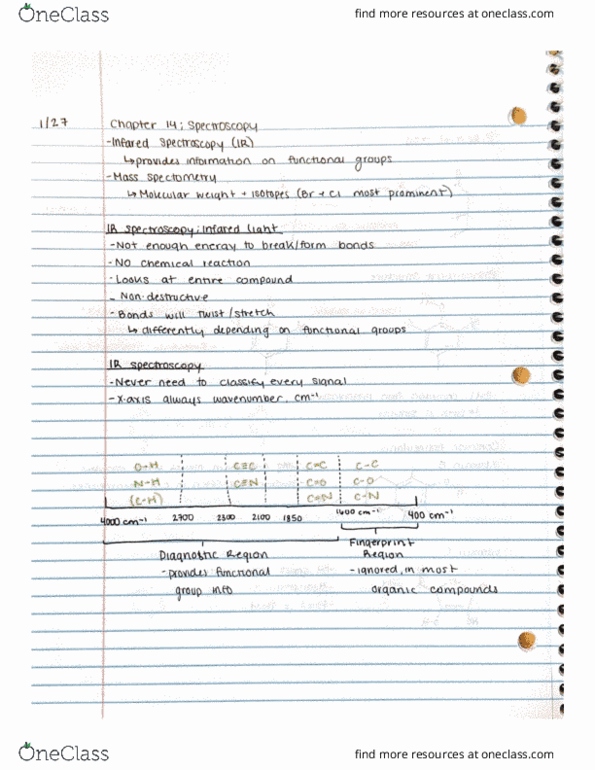 OneClass
find more resources at oneclass.com
1/27 Chapter 14; Spectroscopy
-Infared Spectroscopy (IR)
↳ provides information on functional groups
-Mass Spectometry
↳ Molecular weight + isotopes (Br + Cl most prominent)
IR spectroscopy; Infared light
-Not enough energy to break/form bonds
-No chemical reaction
-Looks at entire compound
- Non-destructive
- Bonds will twist/stretch
↳ differently depending on functional groups
IR spectroscopy
-Never need to classify every signal
-X-axis always wavenumber, cm⁻¹
O-H C≡C C=C C-C
N-H C≡N C=O C-O
(C-H) C=N C-N
4000 cm⁻¹ 2700 2300 2100 1850 1600 cm⁻¹ 400 cm⁻¹
Diagnostic Region Fingerprint Region
-provides functional -ignored, in most
group info organic compounds
OneClass
find more resources at oneclass.com